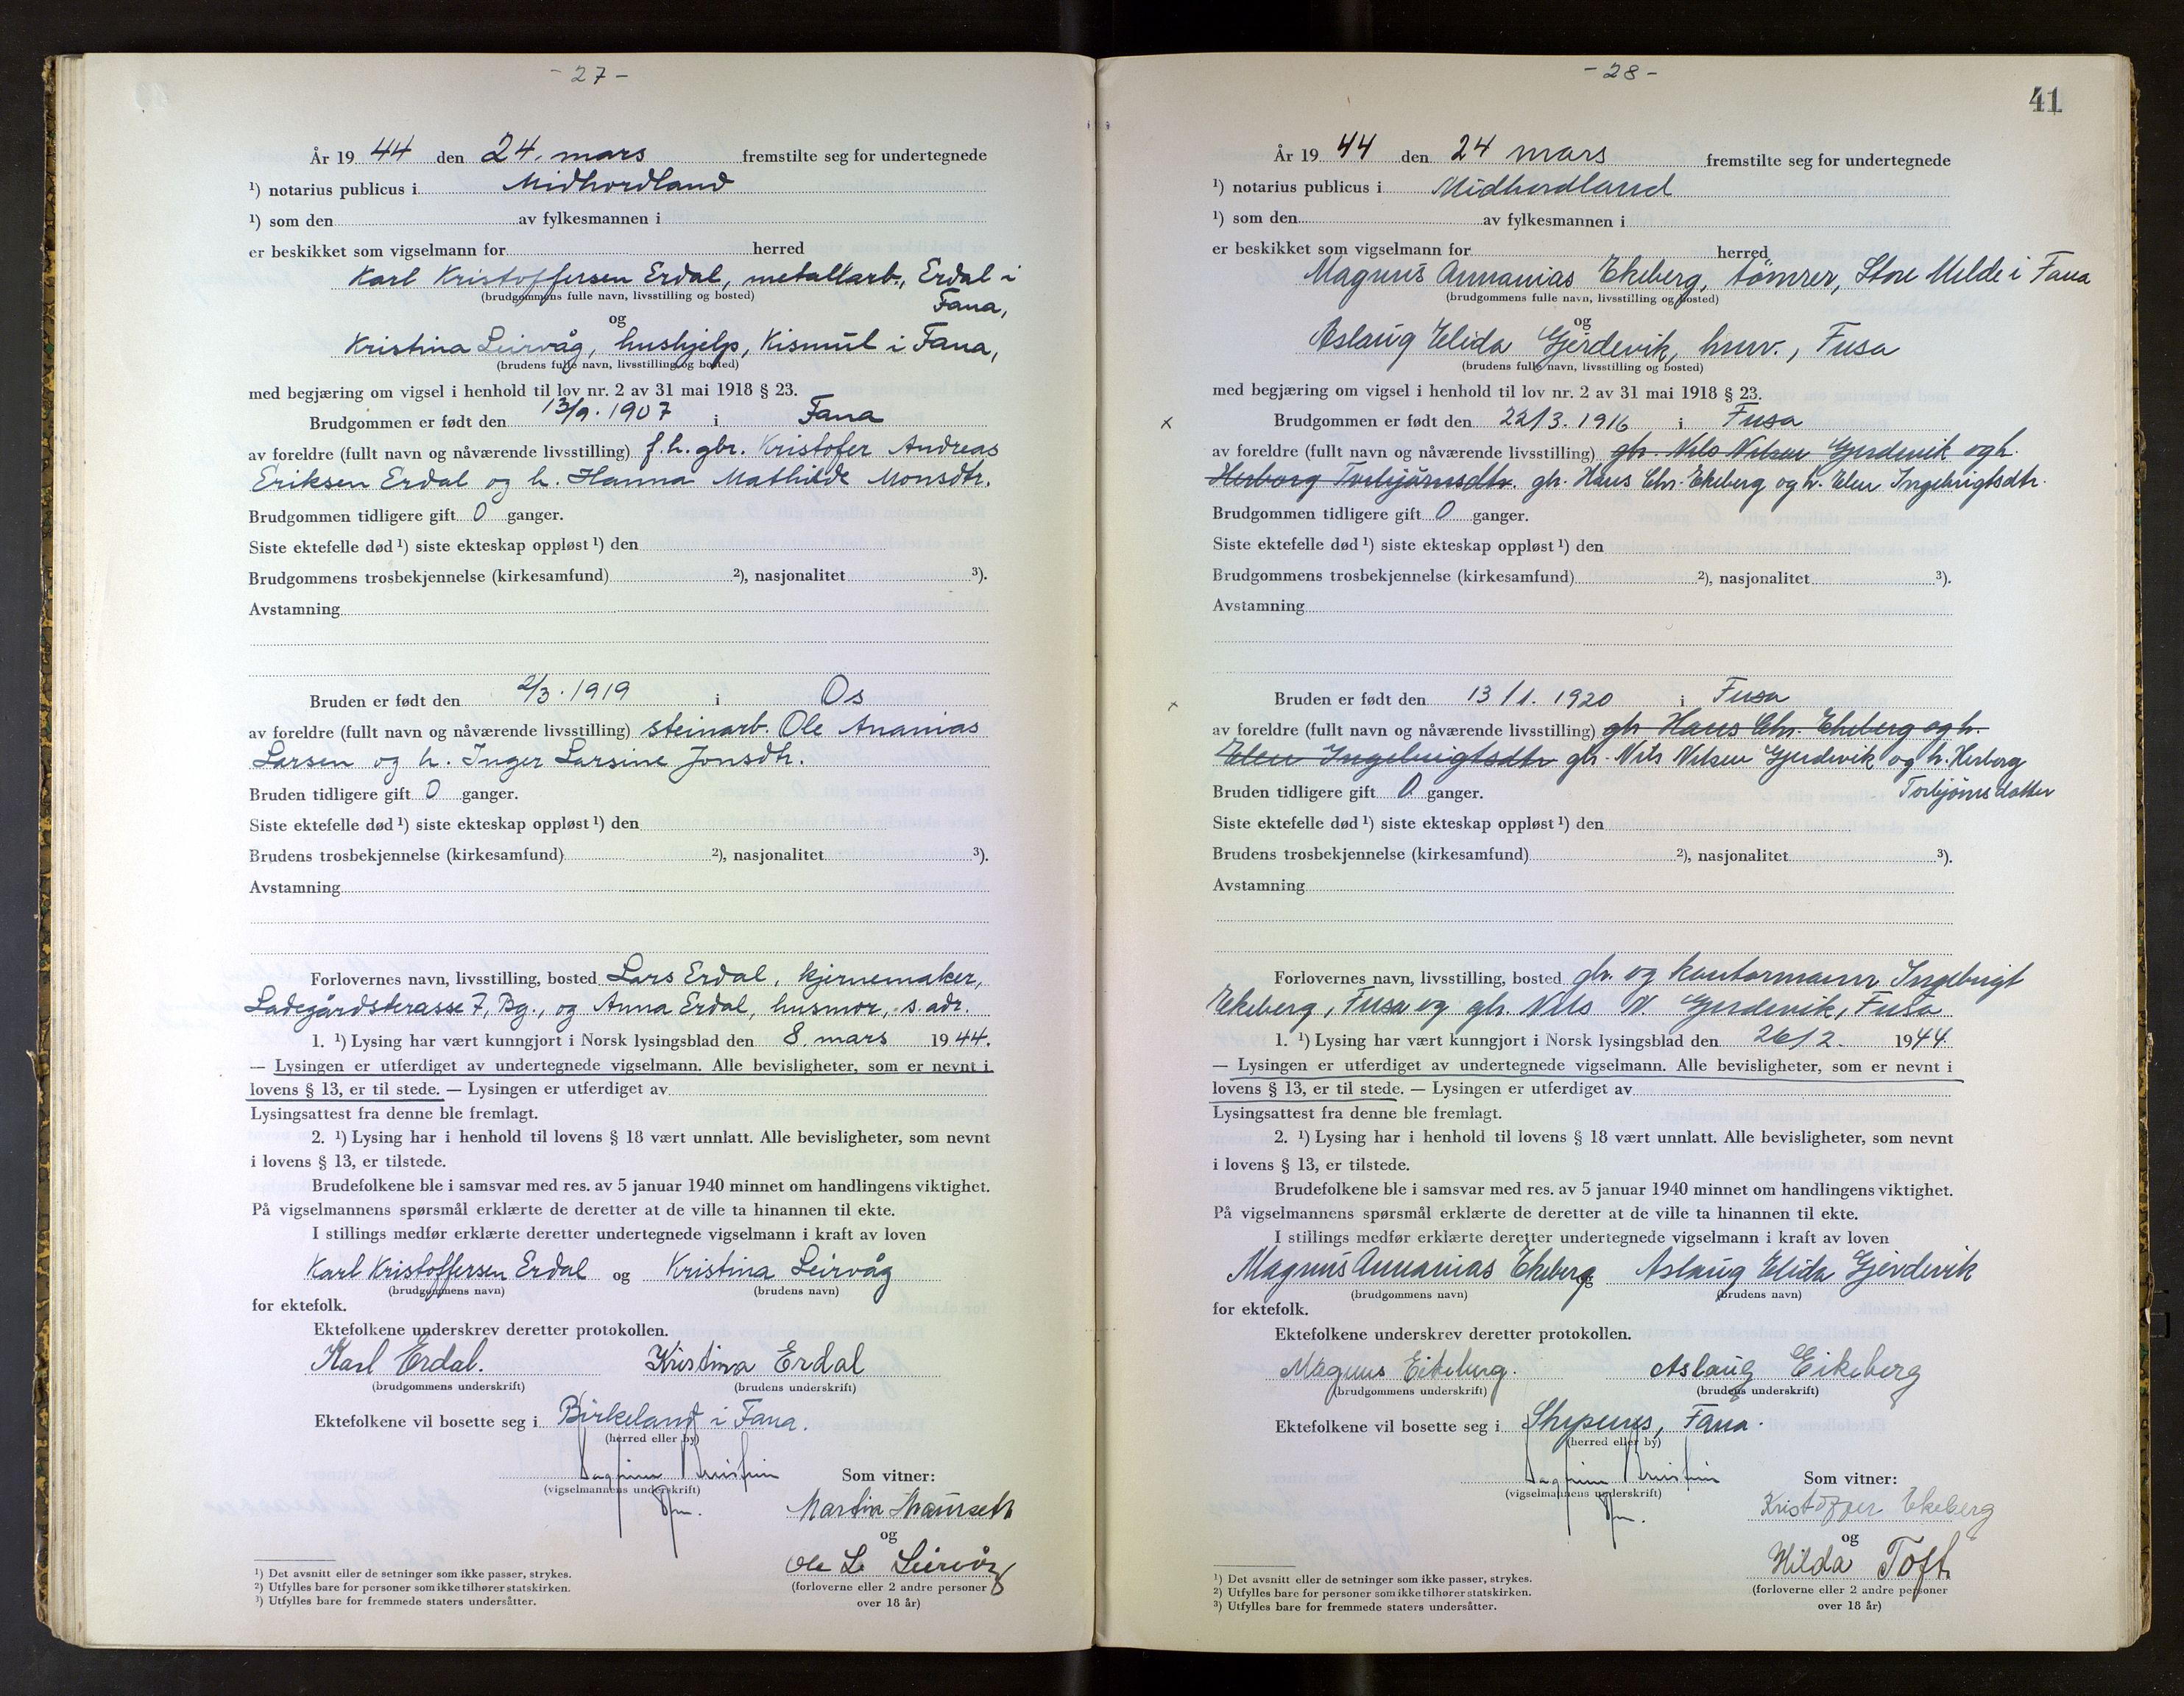 - 27 -
År 19 44 den 24. mars fremstilte seg for undertegnede
¹) notarius publicus i Midhordland
¹) som den av fylkesmannen i
er beskikket som vigselmann for herred
Karl Kristoffersen Erdal, metallarb., Erdal i
(brudgommens fulle navn, livsstilling og bosted)
Fana,
og
Kristina Leirvåg, hushjelp, Kismul i Fana,
(brudens fulle navn, livsstilling og bosted)
med begjæring om vigsel i henhold til lov nr. 2 av 31 mai 1918 § 23.
Brudgommen er født den 13/9. 1907 i Fana
av foreldre (fullt navn og nåværende livsstilling) f.h. gbr. Kristofer Andreas
Eriksen Erdal og h. Hanna Mathilde Monsdtr.
Brudgommen tidligere gift 0 ganger.
Siste ektefelle død ¹) siste ekteskap oppløst ¹) den
Brudgommens trosbekjennelse (kirkesamfund) ²), nasjonalitet ³).
Avstamning
Bruden er født den 2/3. 1919 i Os
av foreldre (fullt navn og nåværende livsstilling) steinarb. Ole Ananias
Larsen og h. Inger Larsine Jonsdtr.
Bruden tidligere gift 0 ganger.
Siste ektefelle død ¹) siste ekteskap oppløst ¹) den
Brudens trosbekjennelse (kirkesamfund) ²), nasjonalitet ³).
Avstamning
Forlovernes navn, livsstilling, bosted Lars Erdal, kjernemaker,
Ladegårdsterasse 7, Bg., og Anna Erdal, husmor, s. adr.
1. ¹) Lysing har vært kunngjort i Norsk lysingsblad den 8. mars 19 44.
— Lysingen er utferdiget av undertegnede vigselmann. Alle bevisligheter, som er nevnt i
lovens § 13, er til stede. — Lysingen er utferdiget av
Lysingsattest fra denne ble fremlagt.
2. ¹) Lysing har i henhold til lovens § 18 vært unnlatt. Alle bevisligheter, som nevnt
i lovens § 13, er tilstede.
Brudefolkene ble i samsvar med res. av 5 januar 1940 minnet om handlingens viktighet.
På vigselmannens spørsmål erklærte de deretter at de ville ta hinannen til ekte.
I stillings medfør erklærte deretter undertegnede vigselmann i kraft av loven
Karl Kristoffersen Erdal og Kristina Leirvåg
(brudgommens navn) (brudens navn)
for ektefolk.
Ektefolkene underskrev deretter protokollen.
Karl Erdal. Kristina Erdal
(brudgommens underskrift) (brudens underskrift)
Ektefolkene vil bosette seg i Birkeland i Fana.
(herred eller by)
(vigselmannens underskrift)
Som vitner:
Martin
og
Ole L. Leirvåg
(forloverne eller 2 andre personer
over 18 år)
¹) Det avsnitt eller de setninger som ikke passer, strykes.
²) Utfylles bare for personer som ikke tilhører statskirken.
³) Utfylles bare for fremmede staters undersåtter.
- 28 -
41
År 19 44 den 24 mars fremstilte seg for undertegnede
¹) notarius publicus i Midhordland
¹) som den av fylkesmannen i
er beskikket som vigselmann for herred
Magnus Annanias Ekeberg, tømrer, Store Milde i Fana
(brudgommens fulle navn, livsstilling og bosted)
og
Aslaug Elida Gjerdevik, husv., Fusa
(brudens fulle navn, livsstilling og bosted)
med begjæring om vigsel i henhold til lov nr. 2 av 31 mai 1918 § 23.
x Brudgommen er født den 22/3. 1916 i Fusa
av foreldre (fullt navn og nåværende livsstilling) gbr. Nils Nilsen Gjerdevik og h.
Herborg Torbjörnsdtr. gbr. Hans Chr. Ekeberg og h. Elen Ingebrigtsdtr.
Brudgommen tidligere gift 0 ganger.
Siste ektefelle død ¹) siste ekteskap oppløst ¹) den
Brudgommens trosbekjennelse (kirkesamfund) ²), nasjonalitet ³).
Avstamning
x Bruden er født den 13/1. 1920 i Fusa
av foreldre (fullt navn og nåværende livsstilling) gbr Hans Chr. Ekeberg og h.
Elen Ingebrigtsdtr gbr. Nils Nilsen Gjerdevik og h. Herborg
Torbjörnsdatter
Bruden tidligere gift 0 ganger.
Siste ektefelle død ¹) siste ekteskap oppløst ¹) den
Brudens trosbekjennelse (kirkesamfund) ²), nasjonalitet ³).
Avstamning
Forlovernes navn, livsstilling, bosted gbr. og kontormann Ingebrigt
Ekeberg, Fusa og gbr. Nils N. Gjerdevik, Fusa
1. ¹) Lysing har vært kunngjort i Norsk lysingsblad den 26/2. 19 44.
— Lysingen er utferdiget av undertegnede vigselmann. Alle bevisligheter, som er nevnt i
lovens § 13, er til stede. — Lysingen er utferdiget av
Lysingsattest fra denne ble fremlagt.
2. ¹) Lysing har i henhold til lovens § 18 vært unnlatt. Alle bevisligheter, som nevnt
i lovens § 13, er tilstede.
Brudefolkene ble i samsvar med res. av 5 januar 1940 minnet om handlingens viktighet.
På vigselmannens spørsmål erklærte de deretter at de ville ta hinannen til ekte.
I stillings medfør erklærte deretter undertegnede vigselmann i kraft av loven
Magnus Annanias Ekeberg og Aslaug Elida Gjerdevik
(brudgommens navn) (brudens navn)
for ektefolk.
Ektefolkene underskrev deretter protokollen.
Magnus Eikeberg. Aslaug Eikeberg
(brudgommens underskrift) (brudens underskrift)
Ektefolkene vil bosette seg i Stupenes, Fana.
(herred eller by)
(vigselmannens underskrift)
Som vitner:
Kristoffer Ekeberg
og
Hilda Toft.
(forloverne eller 2 andre personer
over 18 år)
¹) Det avsnitt eller de setninger som ikke passer, strykes.
²) Utfylles bare for personer som ikke tilhører statskirken.
³) Utfylles bare for fremmede staters undersåtter.